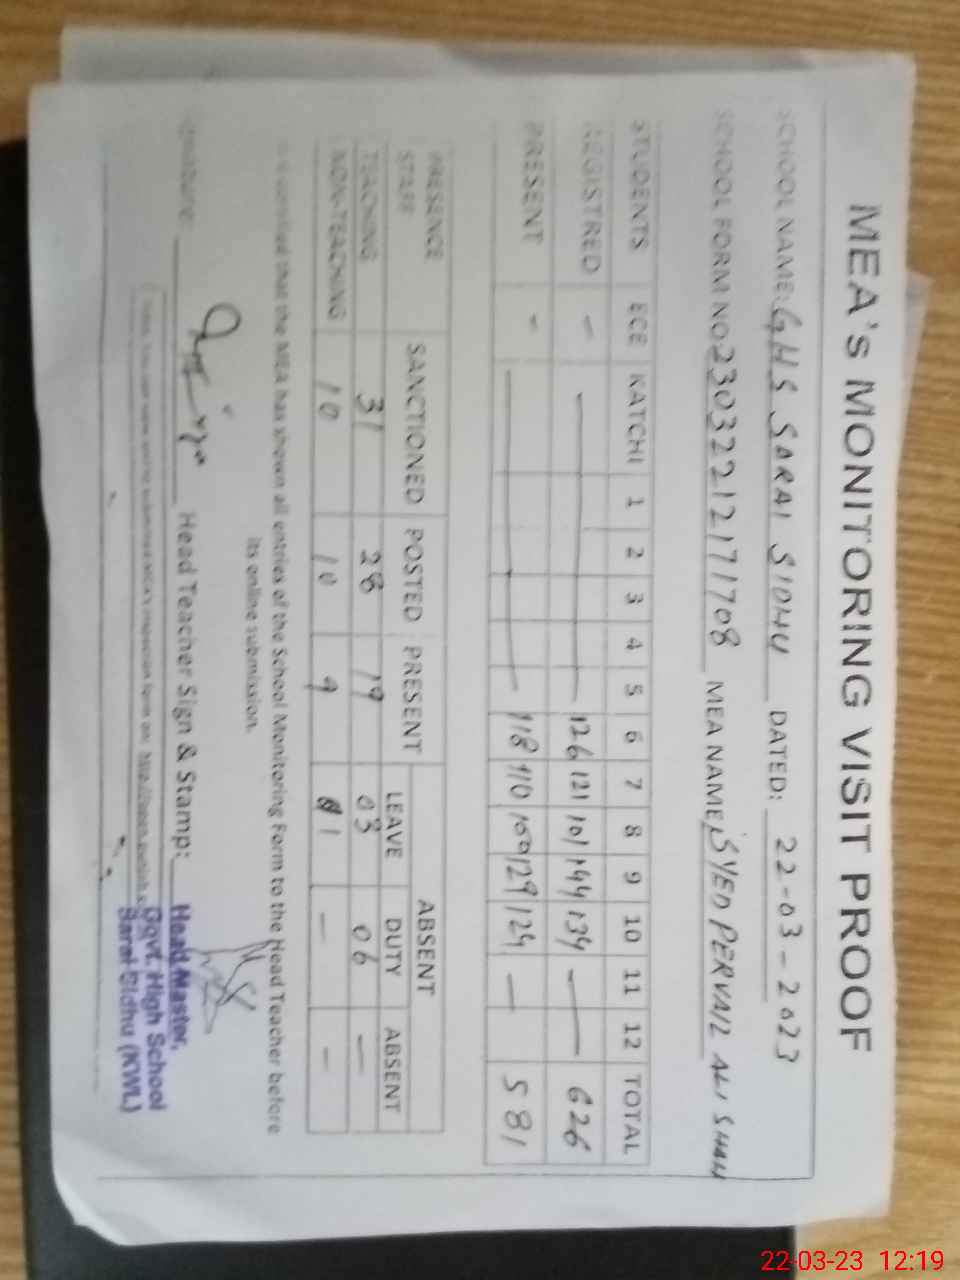 MEA's MONITORING VISIT PROOF
SCHOOL NAME: GHS SARAI SIDHU DATED: 22-03-2023
SCHOOL FORM NO: 230322121771708 MEA NAME: SYED PERVAIZ ALI SHAH
STUDENTS ECE KATCHI 1 2 3 4 5 6 7 8 9 10 11 12 TOTAL
REGISTRED - — 126 121 101 144 134 — 626
PRESENT - — 118 110 100 129 124 — 581
PRESENCE STAFF SANCTIONED POSTED PRESENT ABSENT
LEAVE DUTY ABSENT
TEACHING 31 28 19 03 06 —
NON-TEACHING 10 10 9 1 — —
It is certified that the MEA has shown all entries of the School Monitoring Form to the Head Teacher before
its online submission.
Signature: Head Teacher Sign & Stamp:
Head Master,
Govt. High School
Sarai Sidhu (KWL)
22-03-23 12:19